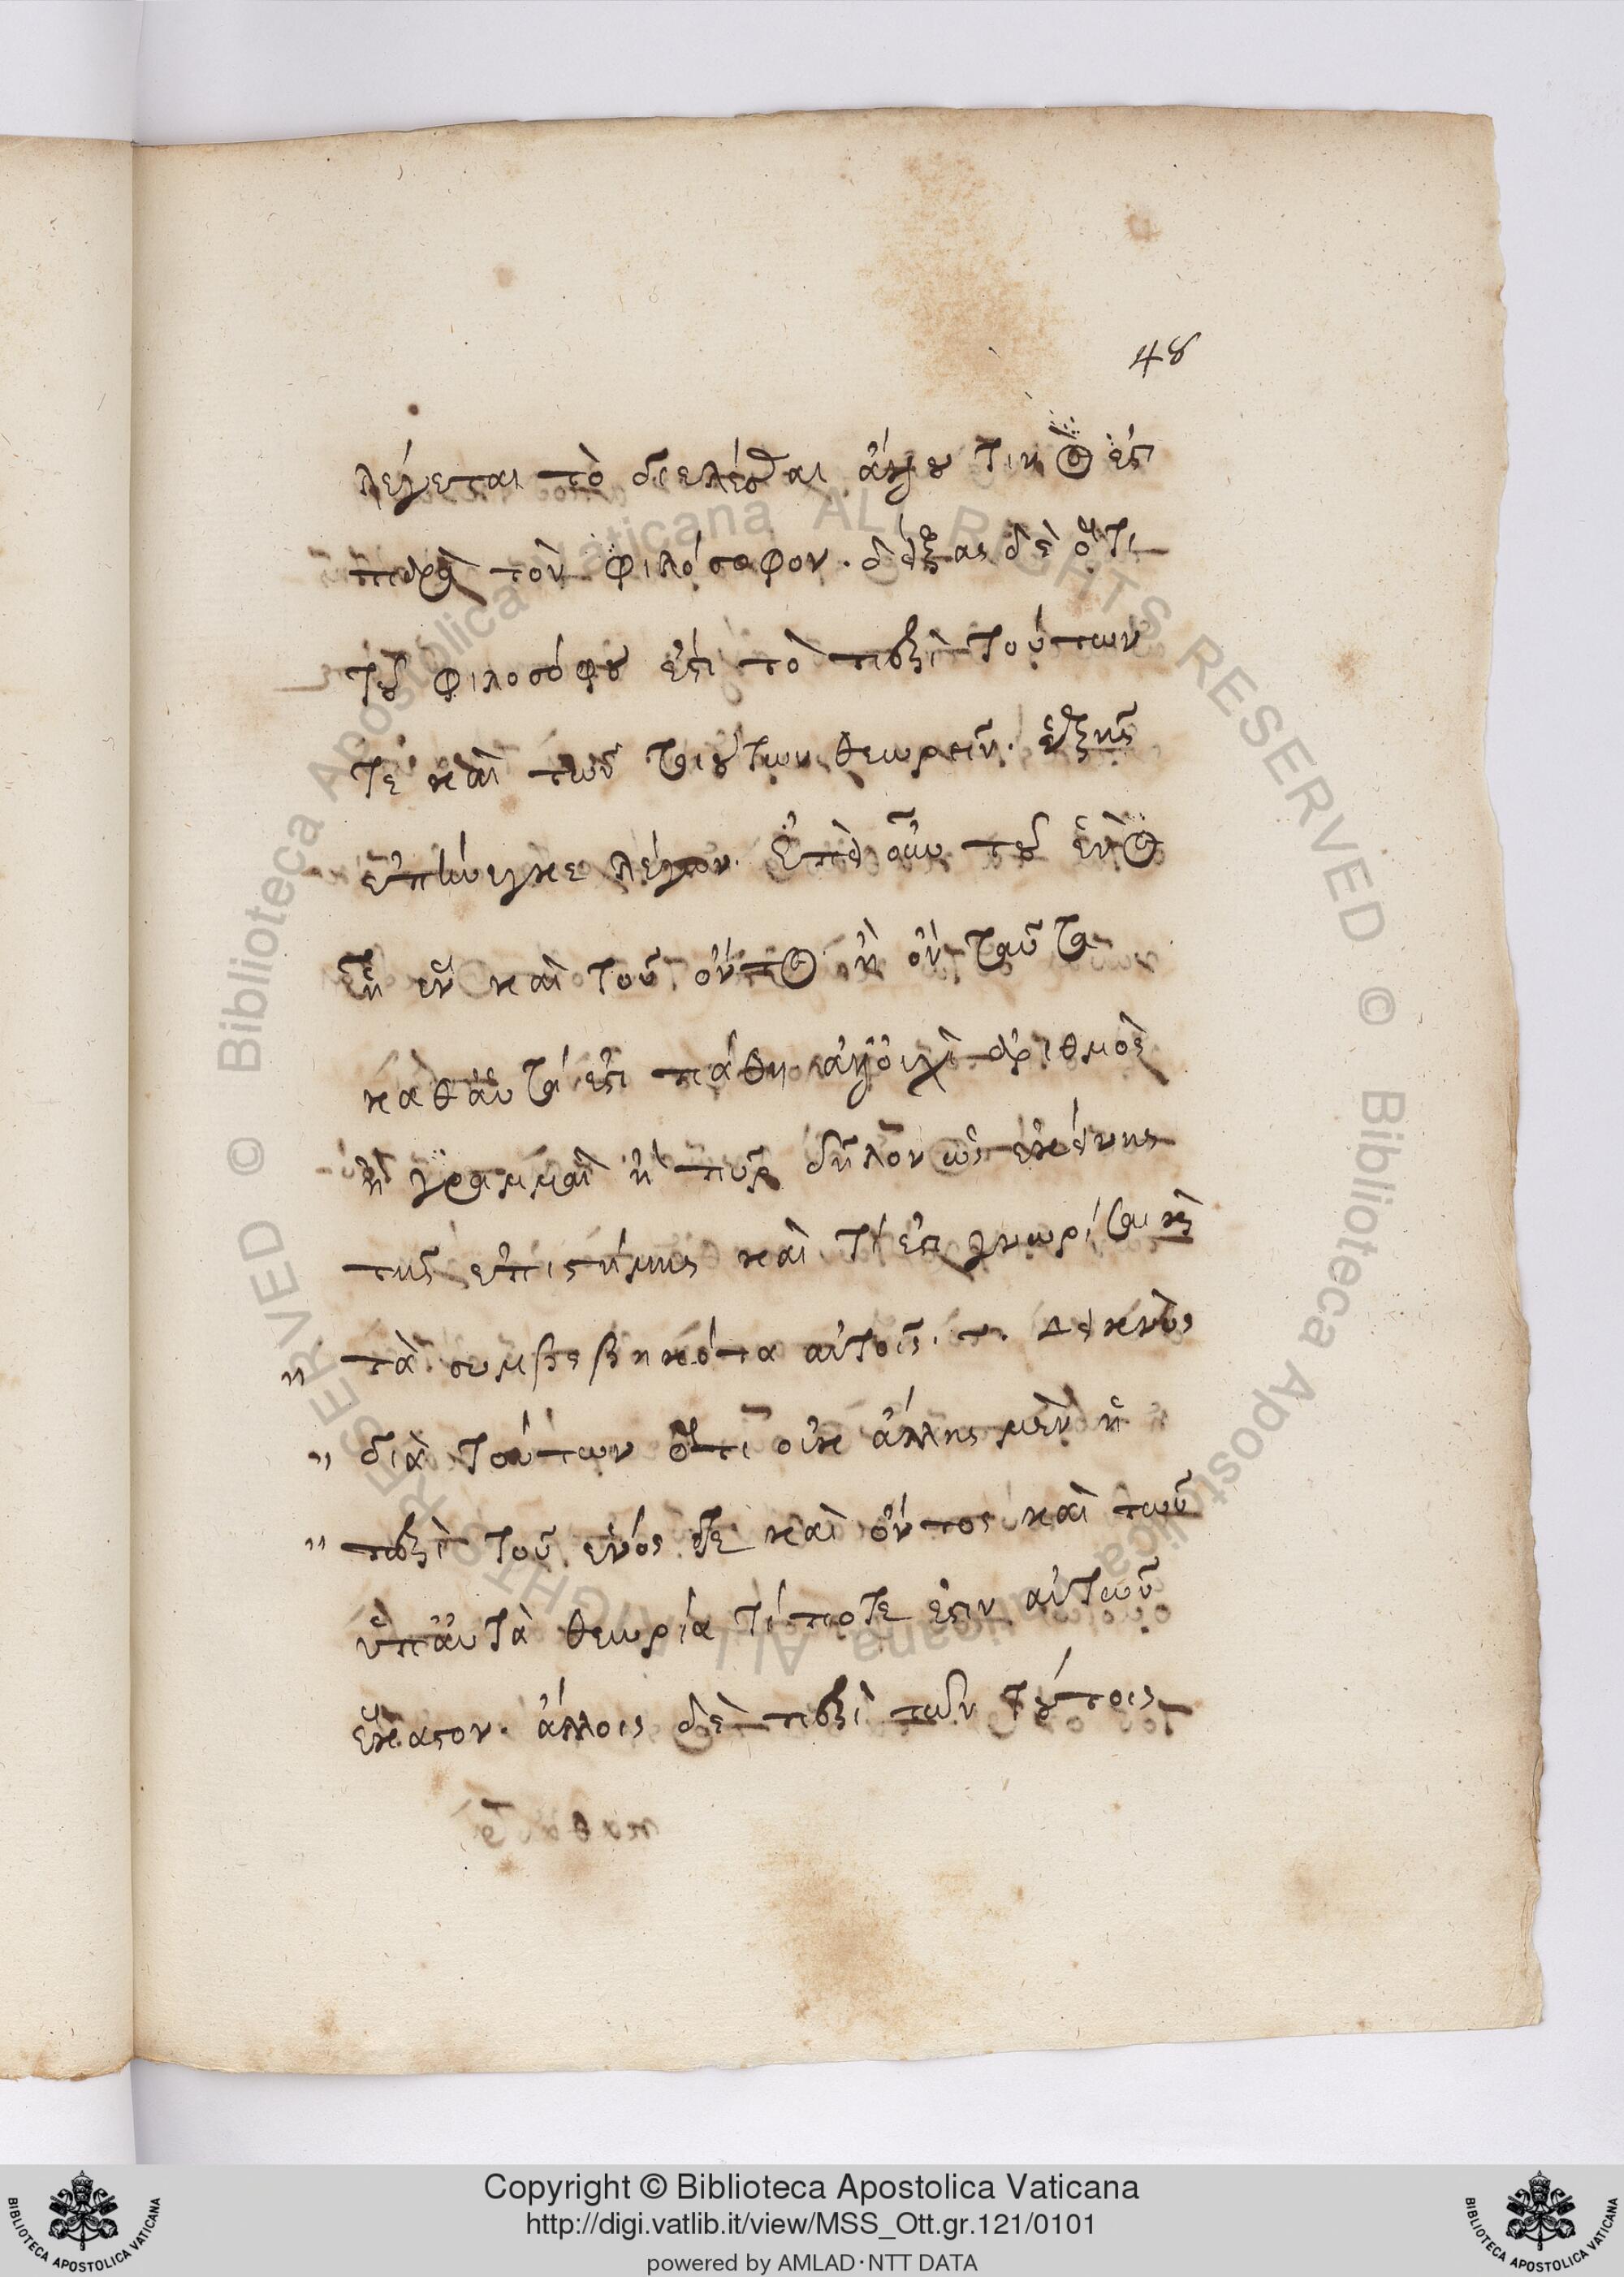 48
λέγεται τὸ διελέσθαι ἄνευ τινὸς ἐστὶ
παρὰ τὸν φιλόσοφον. δείξας δὲ ὅτι
τοῦ φιλοσόφου ἐστὶ τὸ περὶ τούτων
τε καὶ τῶν τοιούτων θεωρεῖν. ἑξῆς
ἐπήνεγκε λέγων. Ἐπεὶ οὖν τοῦ ἑνὸς
ᾗ ἓν καὶ τοῦ ὄντος ᾗ ὂν ταῦτα
καθ' αὑτά ἐστι πάθη ἀλλ' οὐχὶ ἀριθμὸς
ἢ γραμμαὶ ἢ πῦρ δῆλον ὡς ἐκείνης
τῆς ἐπιστήμης καὶ τί ἐστι γνωρίσαι καὶ
τὰ συμβεβηκότα αὐτοῖς. Δεικνὺς
διὰ τούτων ὅτι οὐκ ἄλλης μὲν ἡ
περὶ τοῦ ἑνός τε καὶ ὄντος καὶ τῶν
ὑπ' αὐτὰ θεωρία τί ποτέ ἐστιν αὐτῶν
ἕκαστον. ἄλλοις δὲ περὶ τῶν τούτοις
© Biblioteca Apostolica Vaticana ALL RIGHTS RESERVED
© Biblioteca Apostolica Vaticana ALL RIGHTS RESERVED
BIBLIOTECA APOSTOLICA VATICANA
Copyright © Biblioteca Apostolica Vaticana
http://digi.vatlib.it/view/MSS_Ott.gr.121/0101
powered by AMLAD·NTT DATA
BIBLIOTECA APOSTOLICA VATICANA